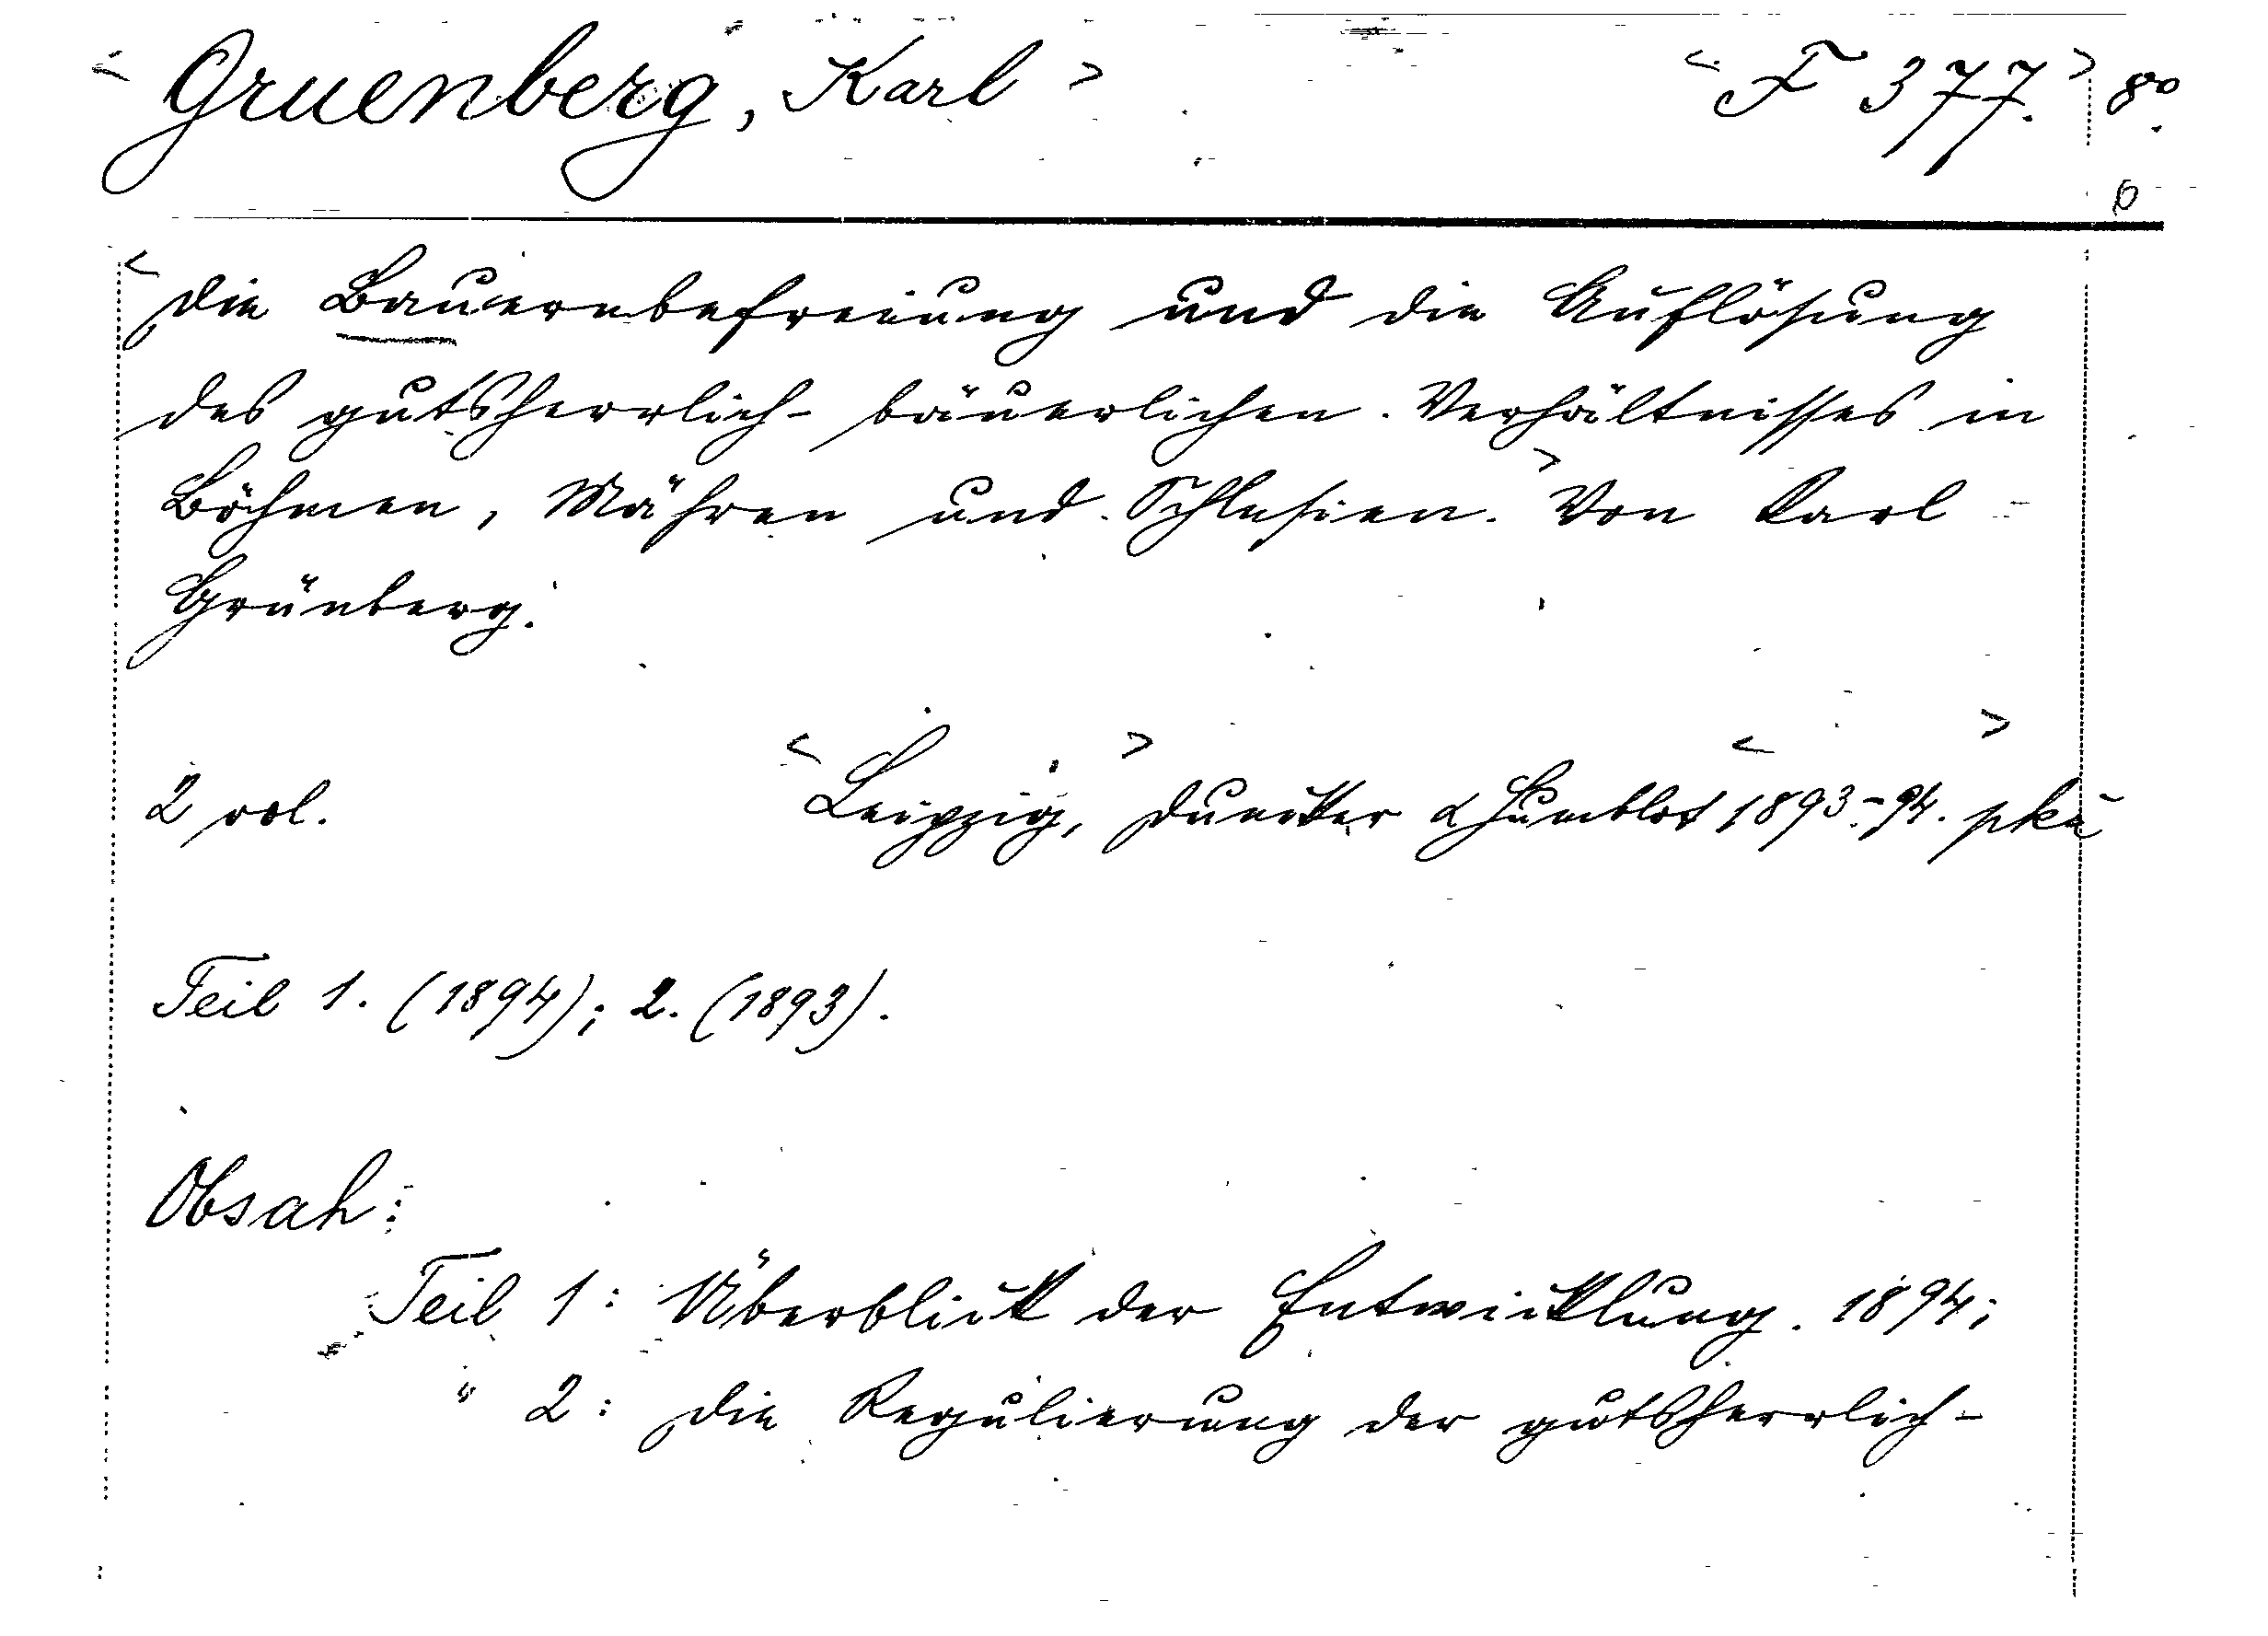 < Gruenberg, Karl > < F 377. > 8°.
< Die Bauernbefreiung und die Auflösung
des gutsherrlich-bäuerlichen Verhältnisses in
Böhmen, Mähren und Schlesien. > Von Karl
Grünberg.
2 vol. < Leipzig, > Duncker & Humblot < 1893-94. >
Teil 1. (1894); 2. (1893).
Obsah:
Teil 1: Überblick der Entwicklung. 1894;
" 2: Die Regulierung der gutsherrlich-